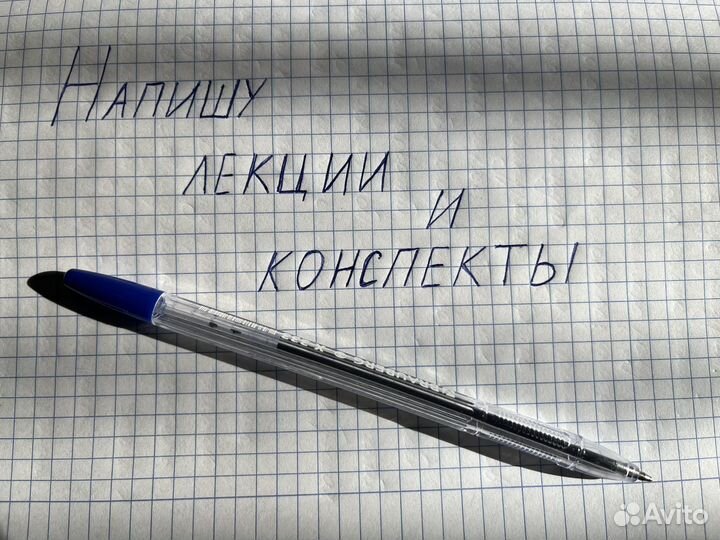 Напишу
лекции
и
конспекты
Avito